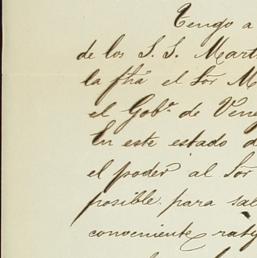 Tengo a
de los S. S. Mart
la fha el Sor M
el Gobº de Vene
En este estado d
el poder al Sor
posible para sal
conveniente rati